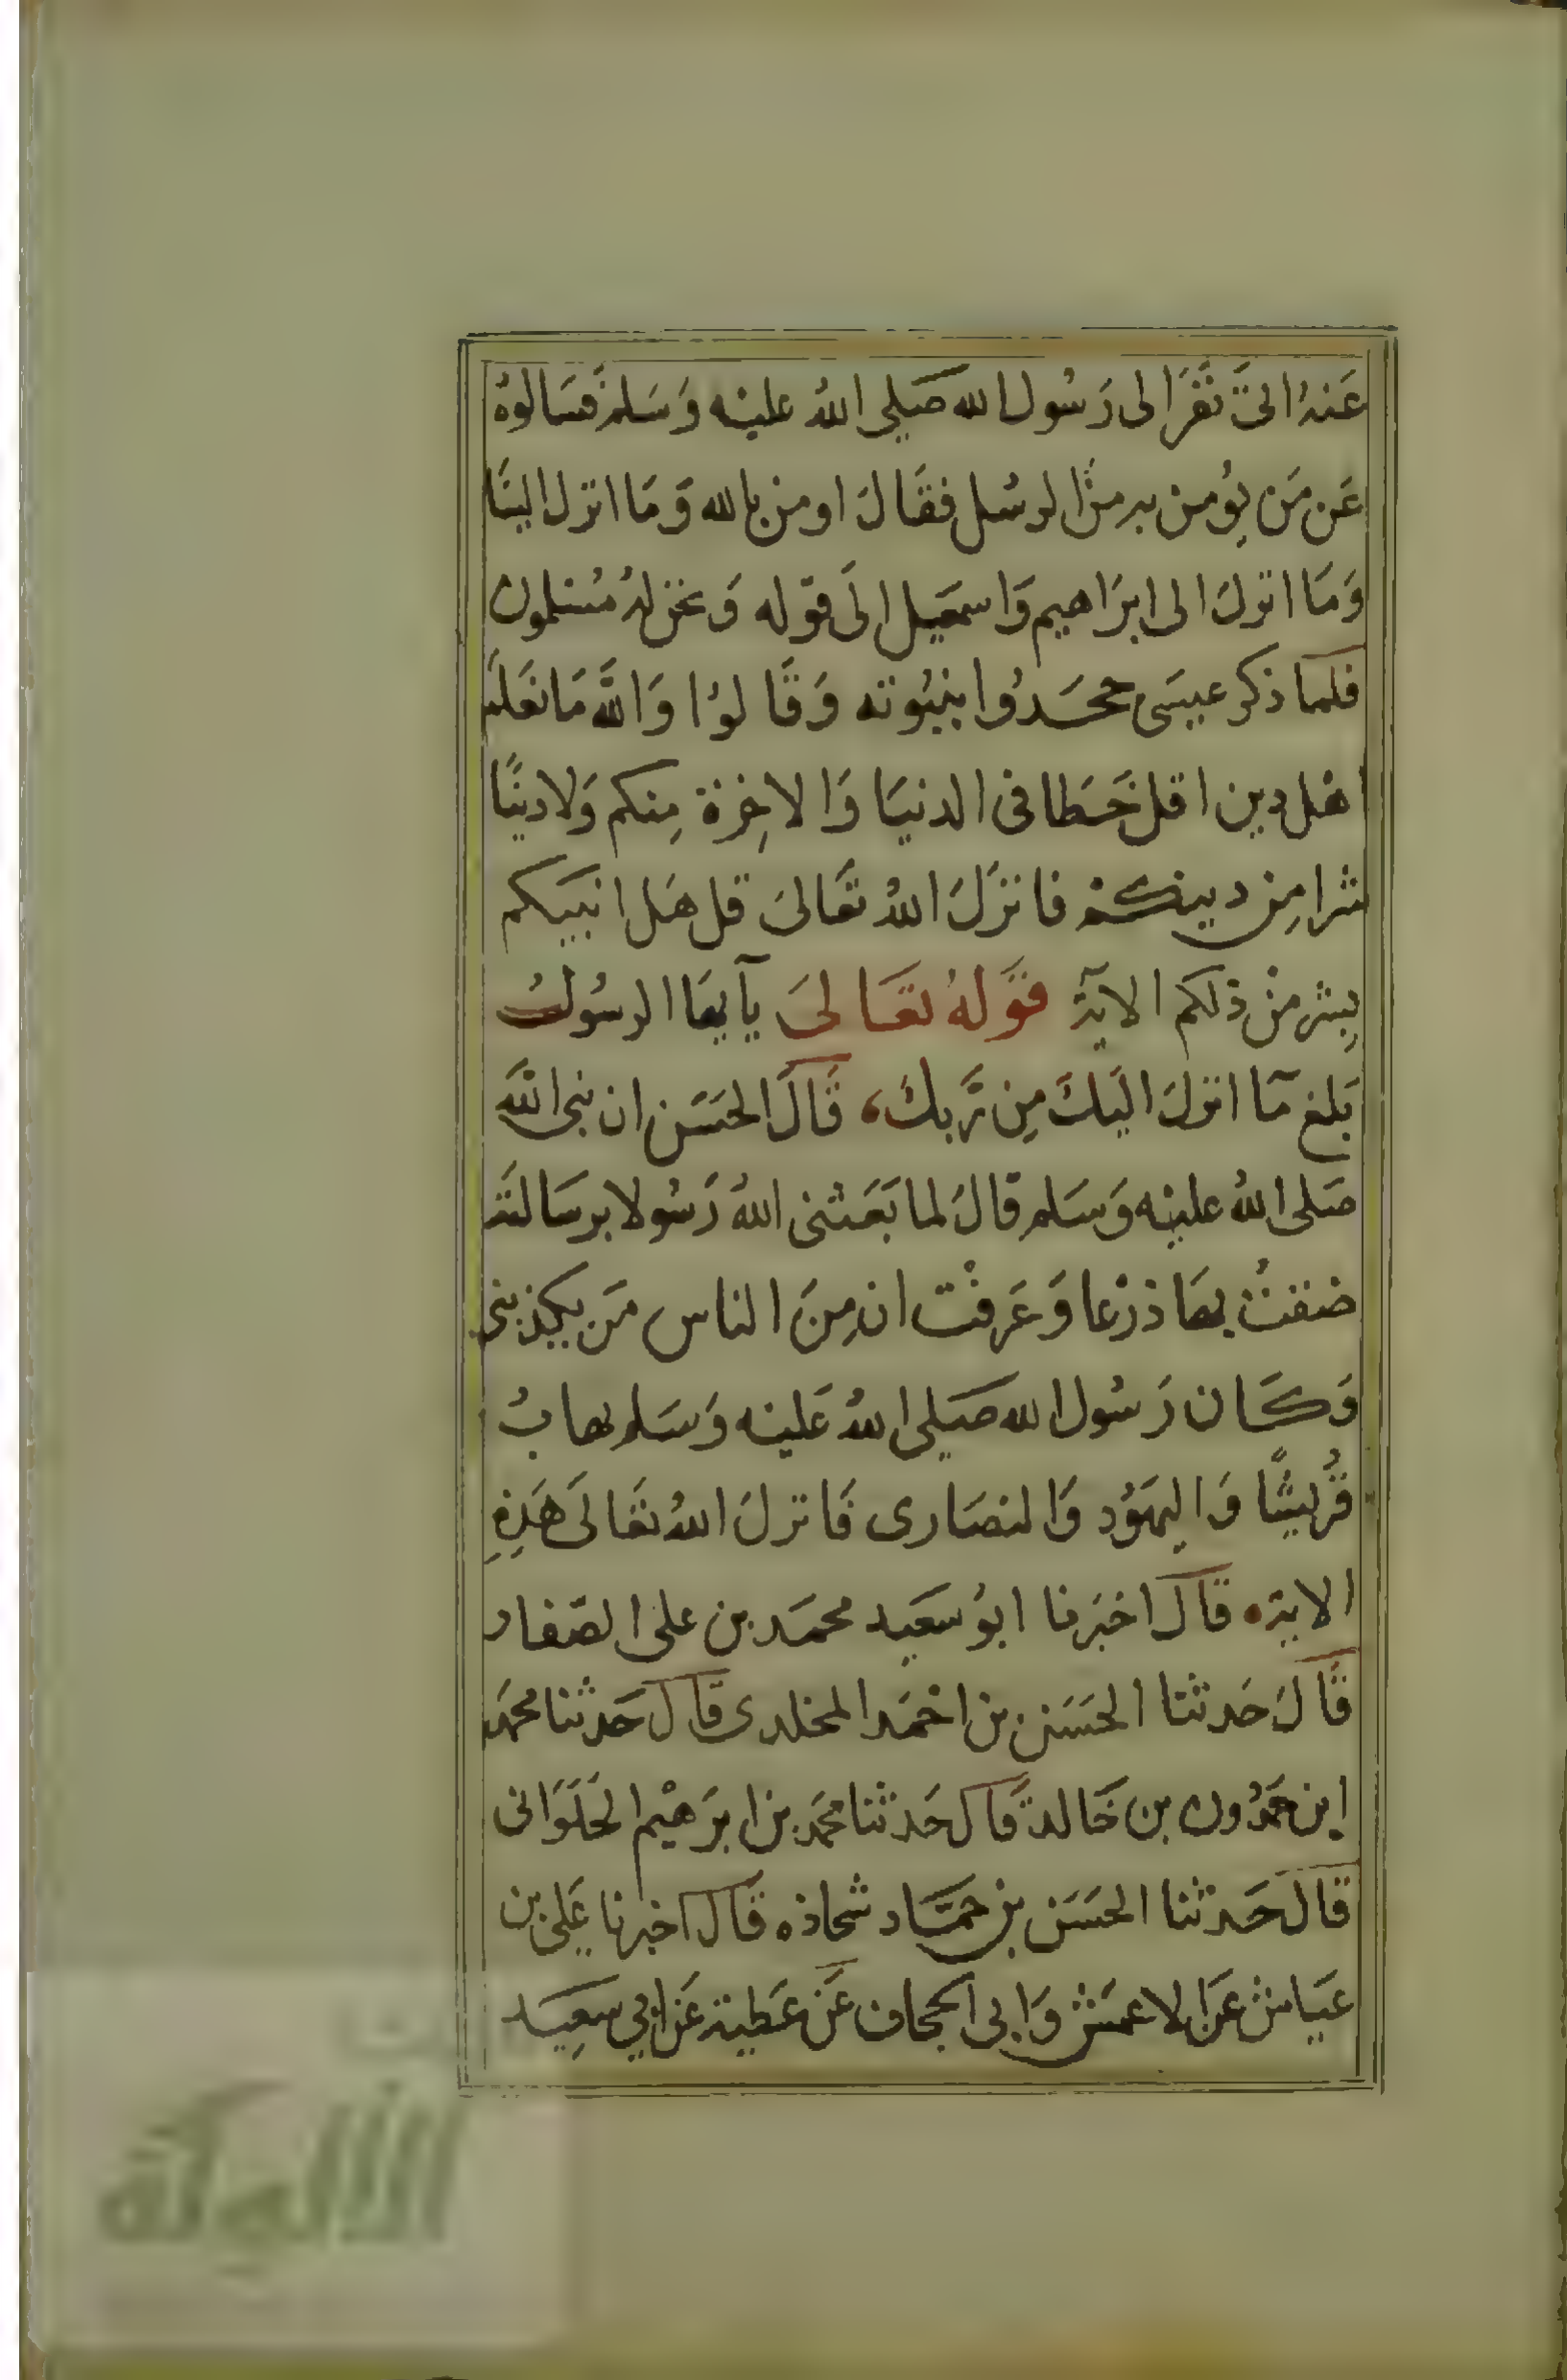 عَنهُ اتىَ نَفَرَ الى رَسُول الله صَلى اللهُ علينه وَسَلم فَسَالوُهُ
عَن مَن يوُمن به منَ الرسُل فقَالَ اومن بالله وَمَا انزل الينَا
وَمَا انزلَ الى ابرَاهيم وَاسمعَيل الىَ قوله وَنحن لهُ مُسْلمون
فلما ذكر عيسَى جحَدوُا بنبُوته وَقَالوُا وَالله مَا نعَلم
اهْل دين اقل حَظا فى الدنيَا وَالاخِرة مِنكم وَلا دينًا
شرا مِن دينكمْ فانزَلَ اللهُ تعَالىَ قل هَل انبيكم
بِشر منْ ذلكم الاَية قوَلهُ تعَالىَ يآيهَا الرسُولُ
بَلغ مَا انزلَ اليَكَ مِن رَّبكَ، قَالَ الحسَن ان نبى الله
صَلى اللهُ علينه وَسَلم قالَ لما بَعَثنى اللهُ رَسُولا برسَالته
ضقتُ بهَا ذرْعا وَعَرفْت ان مِنَ الناس مَن يكذبنى
وَكَان رَسُول الله صَلى اللهُ عَلينه وَسَلم يهابُ
قُريشًا وَاليهَوُد وَالنصَارى فَانزلَ اللهُ تعَالىَ هَذِهِ
الاية قالَ اخبَرنا ابوُ سعَيد محمَد بن على الصَفار
قَالَ حَدثنا الحسَن بن احْمَد المخلدى قالَ حَدثنا محمَد
ابن حمَدُون بن خَالد قَالَ حَدثنا محمَد بن ابرَهيْم الحَلوَانى
قالَ حَدثنا الحسَن بن حمَّاد سجاده قَالَ اخبرنا عَلى بن
عَيَاش عَن الاعمَش وَابى الحجاف عَن عَطية عَن ابي سعِيَد
الألوكة